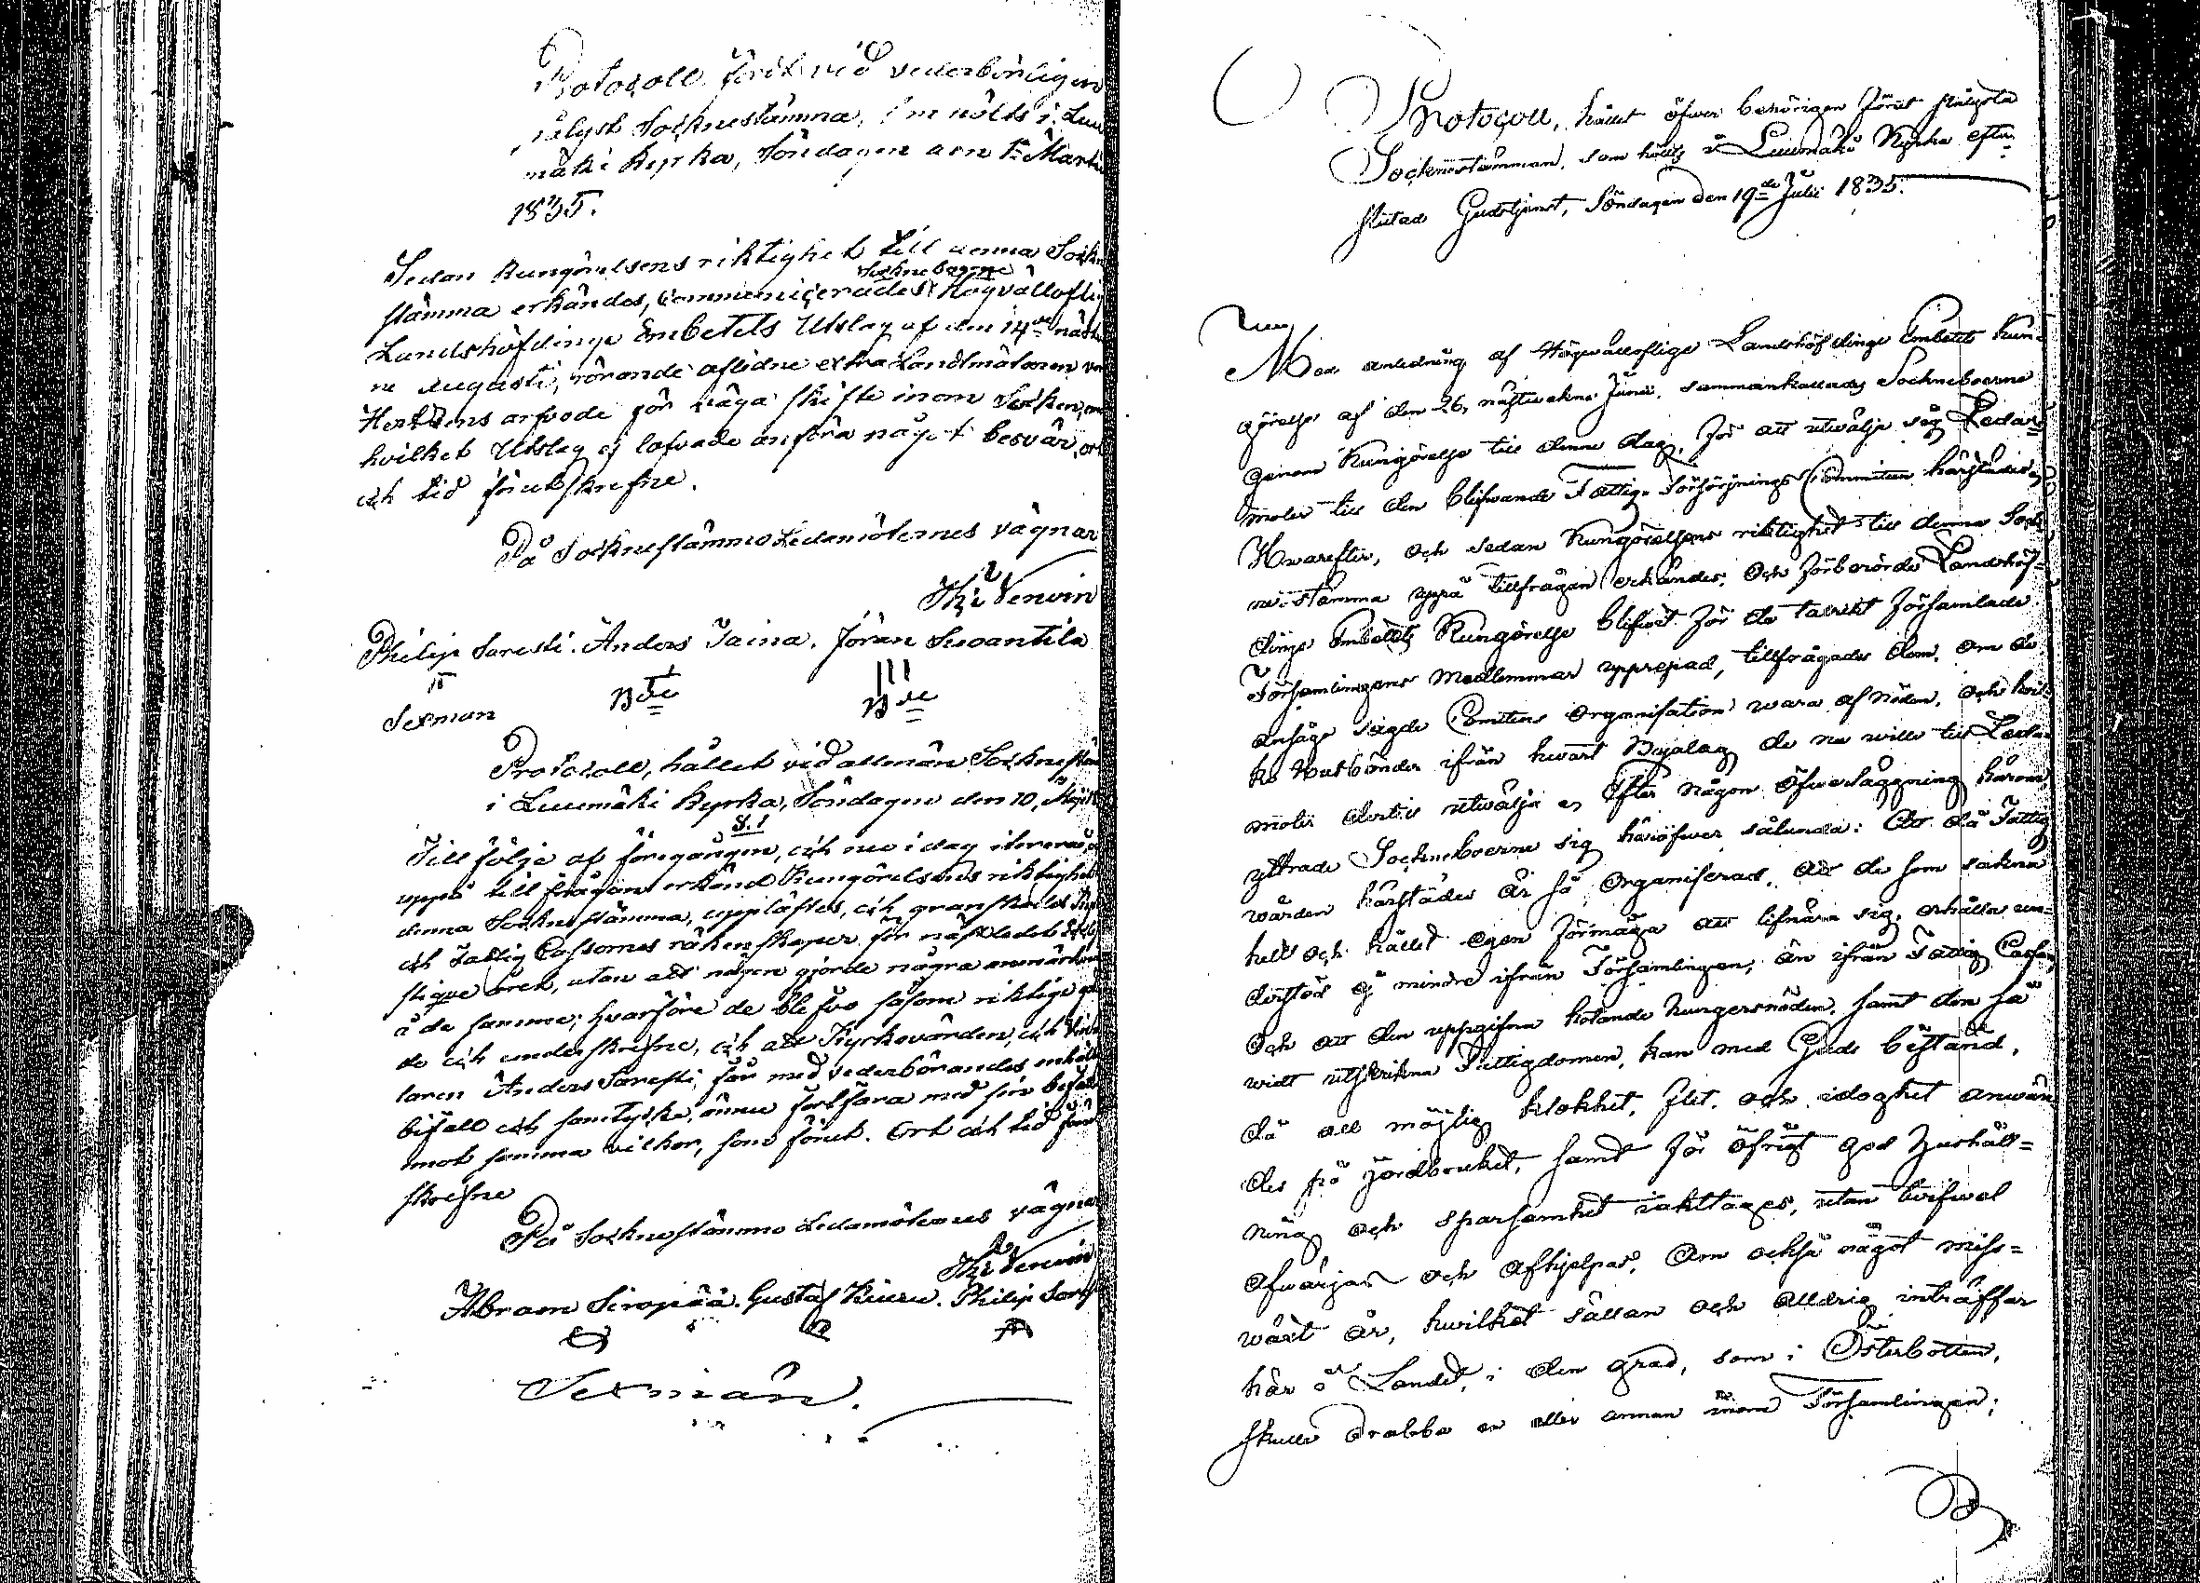 Protocoll fördt vid vederbörligen
pålyst Socknestämma, som hölts i Luu
mäki Kyrka, Söndagen den 1ste Martii
1835.
Sedan Kungörelsens riktighet till denna Sockne
Sockneboerne
stämma erkändes, communicerades Högvällofli
Landshöfdinge Embetets Utslag af den 14de näst
ne Augusti, rörande aflidne extra Landtmätaren von
Hertzens arfvode för väga skifte inom Socken, om
hvilket Utslag ej lofvade anföra något besvär, ort
och tid förutskrefne.
På Socknestämmo Ledamöternes vägnar
Philip Saresti. Anders Taina. Jöran Suoantila
Sexman Bde Bde
Protocoll, hållet vid allmän Socknestäm
i Luumäki Kyrka, Söndagen den 10, Maji
§. 1
Till följe af föregången, och nu i dag
uppå tillfrågan erkänd Kungörelsens riktighet
denna Sockenstämma, upplästes, och granskades Kyr
och Fattig Cassornes räkenskaper för nästledeb
åren, utan att någon gjorde några anmärkn
å de samme; hvarföre de blefvo såsom riktige g
de och underskrefne, och att Kyrkovärden, och
laren Anders Saresti, får med vederbörandes
bifall och samtycke, ännu fortfara med sin befatt
mot samma vilkor, som förut. Ort och tid förut
skrefne
På Sockenstämmo Ledamöternes vägnar
Abram Siropää. Gustaf Kiuru. Philip Sares
Sexmän.
Protocoll, hållet öfwer behörigen förut pålysta
Socknestämman, som hölts i Luumäki Kyrka efter
slutad Gudstjenst, Söndagen den 19de Julii 1835.
Med anledning af Högwälloflige Landshöfdinge Embetets Kun-
görelse af den 26, nästwekne Junii, sammankallades Sockneboerne
genom Kungörelse till denna dag, för att utwälja sig Leda-
möter till den blifwande Fattig-Försörjnings Committen härstädes
Hwarefter, och sedan Kungörelsens riktighet till denna Sock
nestämma uppå tillfrågan erkändes, och förberörde Landshöf-
dinge Embetets Kungörelse blifwit för de talrikt församlade
Församlingens Medlemmar upprepad, tillfrågades dem, om de
ansågo sagde Comitens organisation wara af nöden, och hwil-
ka husbönder ifrån hwart Byalag de nu wille till Leda
möter dertill utwälja. Efter någon öfwerläggning härom,
yttrade Socknboerne sig häröfwer sålunda: Att då Fattig
wården härstädes är så organiserad, att de som sakna
hell och hållet egen förmåga att lifnära sig, erhålla un-
derstöd ej mindre ifrån Församlingen, än ifrån Fattig Cassan,
och att den uppgifna hotande hungersnöden, samt den så
widt utskrikna Fattigdomen, kan med Guds bistånd,
då all möjlig klokhet, flit, och idoghet anwän
des på jordbruket, samt för öfrigt god hushåll=
ning och sparsamhet iakttages, utan twifwel
afwärjas och afhjelpas, om också något miss=
wäxt år, hwilket sällan och alldrig inträffar
här i Landet, i den grad, som i Österbotten,
skulle drabba en eller annan inom Församlingen;